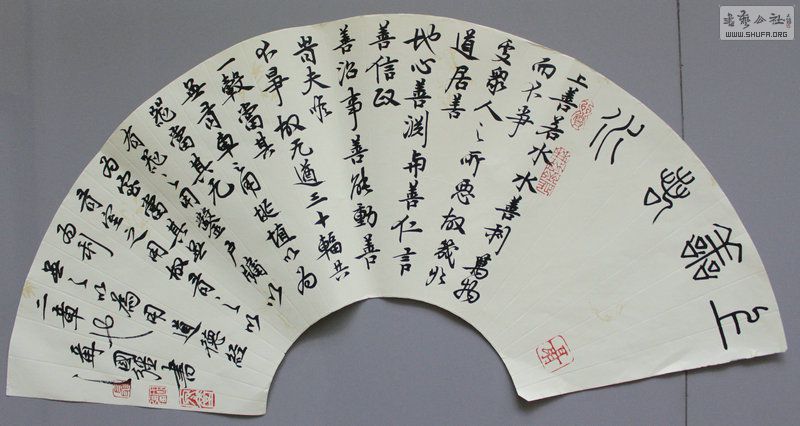 上善若水
上善若水水善利萬物
而不爭
處眾人之所惡故幾於
道居善
地心善淵與善仁言
善信政
善治事善能動善
時夫唯
不爭故无道三十輻共
一轂當其
无有車之用埏埴以為
器當其无
有器之用鑿戶牖以
為室當其无
有室之用故有之以
為利
无之以為用道德經
二章
國強書
書藝公社
WWW.SHUFA.ORG